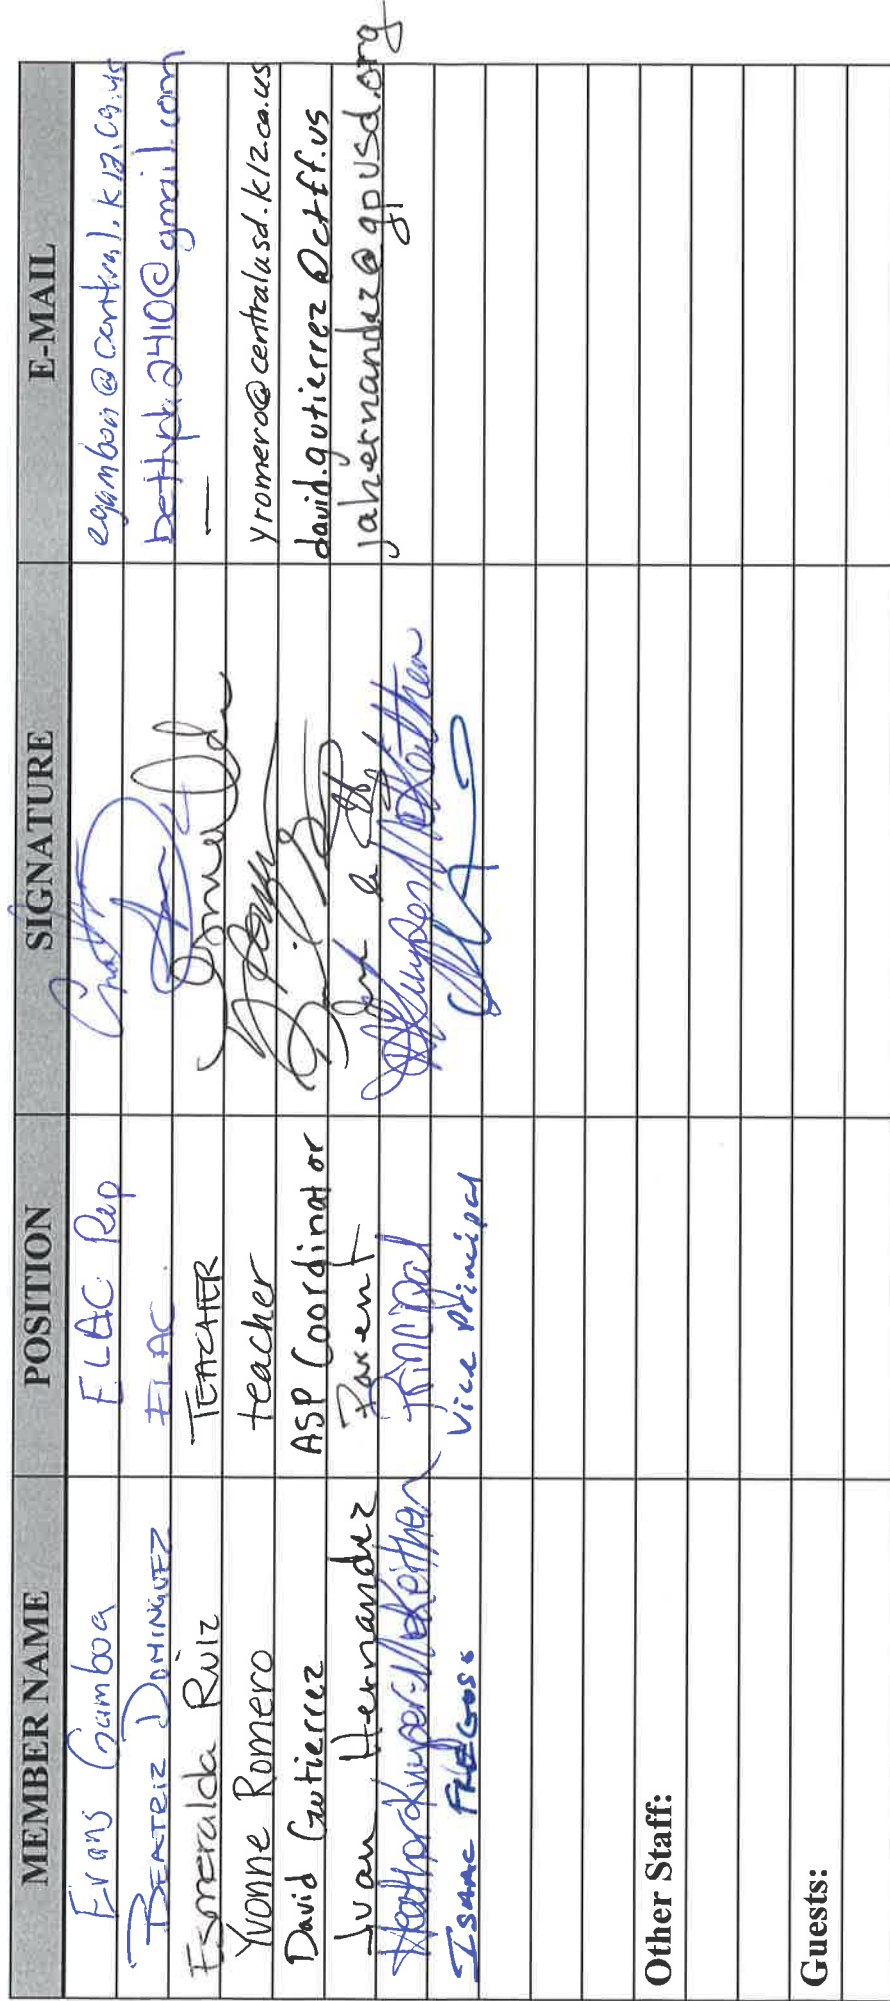 MEMBER NAME POSITION SIGNATURE E-MAIL
Evans Gamboa ELAC Rep
BEATRIZ DOMINGUEZ ELAC @gmail.com
Esmeralda Ruiz TEACHER —
Yvonne Romero teacher yromero@centralusd.k12.ca.us
David Gutierrez ASP Coordinator david.gutierrez@ctff.us
Juan Hernandez Parent jahernandez@gpusd.org
Heather Kuyper-McKeithen Principal
ISAAC FREGOSO Vice Principal
Other Staff:
Guests: